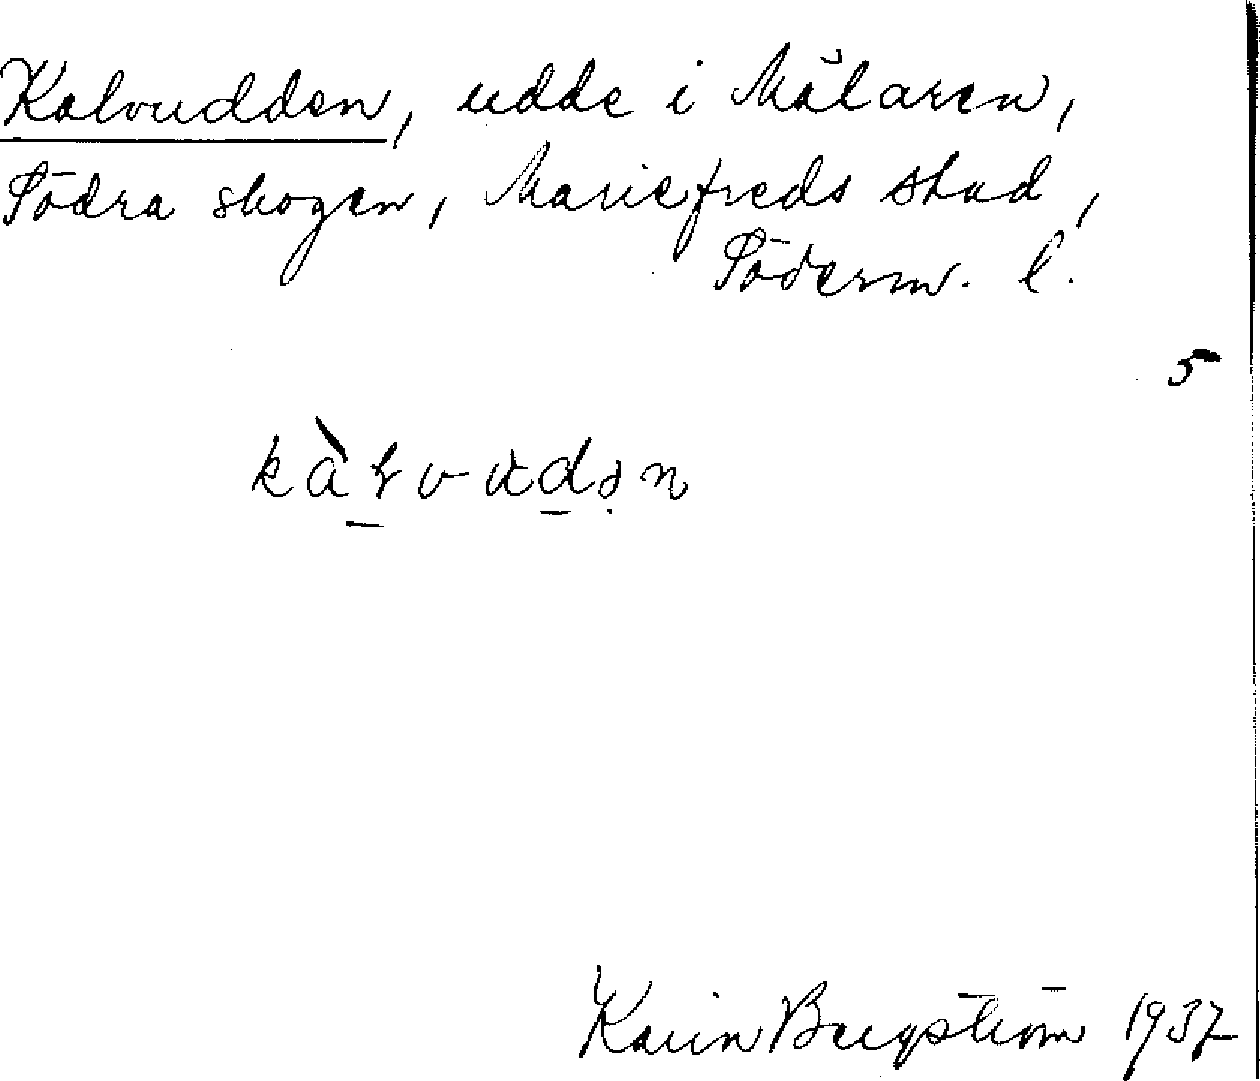 Kalvudden, udde i Mälaren,
Södra skogen, Mariefreds stad,
Söderm. l.
5
kàłvudən
Karin Bergström 1937